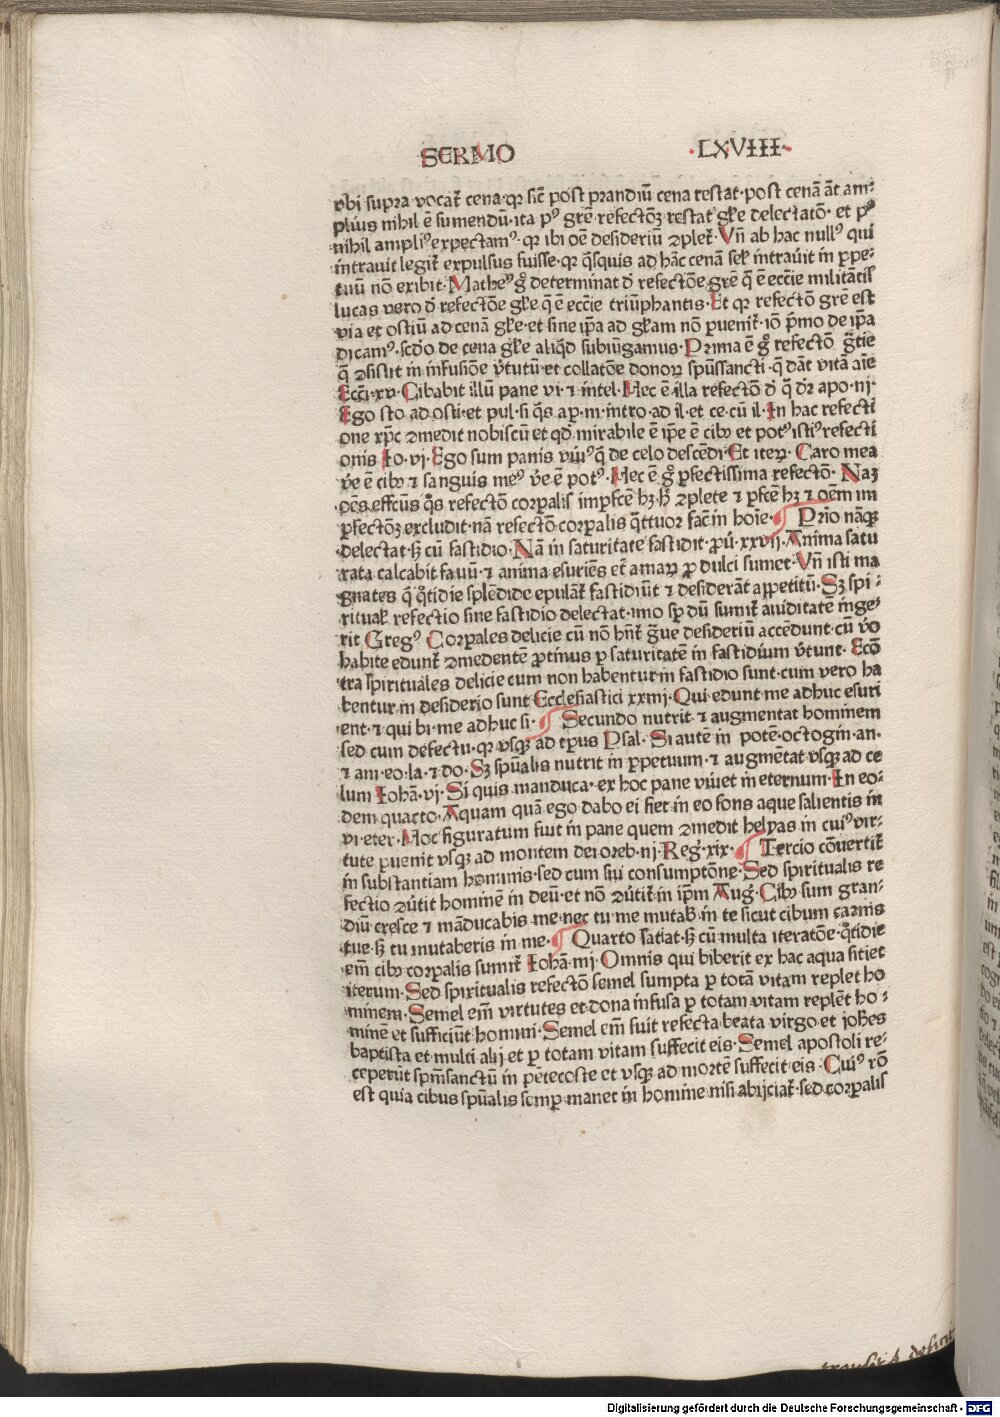 SERMO ·LXVIII·
vbi supra vocat᷑ cena·qꝛ sic̄ post prandiū cena restat·post cenā āt am⸗
plius nihil ē sumendū·ita pꝰ grē refectōꝫ restat gl̄e delectatō· et pꝰ
nihil ampliꝰ expectamꝰ· qꝛ ibi oē desideriū ↄplet᷑· Vn̄ ab hac nullꝰ qui
intrauit legit᷑ expulsus fuisse·qꝛ qͥsquis ad hāc cenā sel̕ intrauit in ꝑpe⸗
tuū nō exibit· Matheꝰ gͦ determinat d̕ refectōe grē q̄ ē eccīe militātis
lucas vero d̕ refectōe gl̄e q̄ ē eccīe triūphantis· Et qꝛ refectō grē est
via et ostiū ad cenā gl̄e·et sine ip̄a ad gl̄am nō ꝑuenit᷑·iō p̄mo de ip̄a
dicamꝰ·scd̄o de cena gl̄e aliqͥd subiūgamus· Prima ē gͦ refectō gr̄tie
q̄ ↄsistit in infusiōe v̕tutū·et collatōe donoꝝ spūssancti·q̄ dāt vitā aīe
Eccī·xv· Cibabit illū pane vi·⁊ intel· Hec ē illa refectō d̕ q̄ dꝛ apo·iij·
Ego sto ad osti·et pul·si qͥs ap·m·intro·ad il·et ce·cū il· In hac refecti
one xp̄c ↄmedit nobiscū et qd̕ mirabile ē ip̄e ē cibꝰ et potꝰ istiꝰ refecti
onis Io·vj· Ego sum panis viuꝰ q̄ de celo descēdi· Et iteꝝ· Caro mea
v̕e ē cibꝰ ⁊ sanguis meꝰ v̕e ē potꝰ· Hec ē gͦ ꝑfectissima refectō· Naꝫ
oēs effcūs qͦs refectō corꝑalis imꝑfcē hꝫ·h̕ ↄplete ⁊ ꝑfcē hꝫ ⁊ oēm im
ꝑfectōꝫ excludit·nā refectō corꝑalis qͣttuor fac̄ in hoīe· ¶ Prīo nāqꝫ
delectat·sꝫ cū fastidio· Nā in saturitate fastidit·ꝓu̕·xxvij· Anima satu
rata calcabit fauū·⁊ anima esuriēs etā amaꝝ ꝓ dulci sumet· Vn̄ isti ma
gnates q̄ qͦtidie splēdide epulāt᷑ fastidiūt ⁊ desiderāt appetitū· Sꝫ spi⸗
ritual̕ refectio sine fastidio delectat·imo sp̄ dū sumit᷑ auiditatē inge⸗
rit Gregꝰ Corꝑales delicie cū nō hn̄t᷑ gͣue desideriū accēdunt·cū v̕o
habite edunt᷑ ↄmedentē ꝓtinus ꝑ saturitatē in fastidium v̕tunt· Ecō
tra spirituales delicie cum non habentur in fastidio sunt·cum vero ha
bentur in desiderio sunt Ecclesiastici xxiiij· Qui edunt me adhuc esuri
ent·⁊ qui bi·me adhuc si· ¶ Secundo nutrit ⁊ augmentat hominem
sed cum defectu·qꝛ vsqꝫ ad tp̄us Psal· Si autē in potē·octogin·an·
⁊ am·eo·la·⁊ do· Sꝫ spūalis nutrit in ꝑpetuum·⁊ augmētat vsqꝫ ad ce
lum Iohā·vj· Si quis manduca·ex hoc pane viuet in eternum· In eo⸗
dem quarto· Aquam quā ego dabo ei fiet in eo fons aque salientis in
vi·eter· Hoc figuratum fuit in pane quem ↄmedit helyas in cuiꝰ vir⸗
tute ꝑuenit vsqꝫ ad montem dei oreb·iij·Reg̕·xix· ¶ Tercio cōuertit᷑
in substantiam hominis·sed cum sui consumptōne· Sed spiritualis re
fectio ↄūtit hominē in deū·et nō ↄūtit᷑ in ip̄m Aug̕· Cibꝰ sum gran⸗
diū cresce ⁊ māducabis me·nec tu me mutab̕ in te sicut cibum carnis
tue·sꝫ tu mutaberis in me· ¶ Quarto satiat·sꝫ cū multa iteratōe·qͦtidie
em̄ cibꝰ corꝑalis sumit᷑ Iohā·iiij· Omnis qui biberit ex hac aqua sitiet
iterum· Sed spiritualis refectō semel sumpta ꝑ totā vitam replet ho
minem· Semel em̄ virtutes et dona infusa ꝑ totam vitam replēt ho⸗
minē et sufficiūt homini· Semel em̄ fuit refecta beata virgo et joh̄es
baptista et multi alij et ꝑ totam vitam suffecit eis· Semel apostoli re⸗
ceperūt spm̄sanctū in pētecoste et vsqꝫ ad mortē suffecit eis· Cuiꝰ rō
est quia cibus spūalis semꝑ manet in homine nisi abijciat᷑·sed corꝑalis
Digitalisierung gefördert durch die Deutsche Forschungsgemeinschaft - DFG